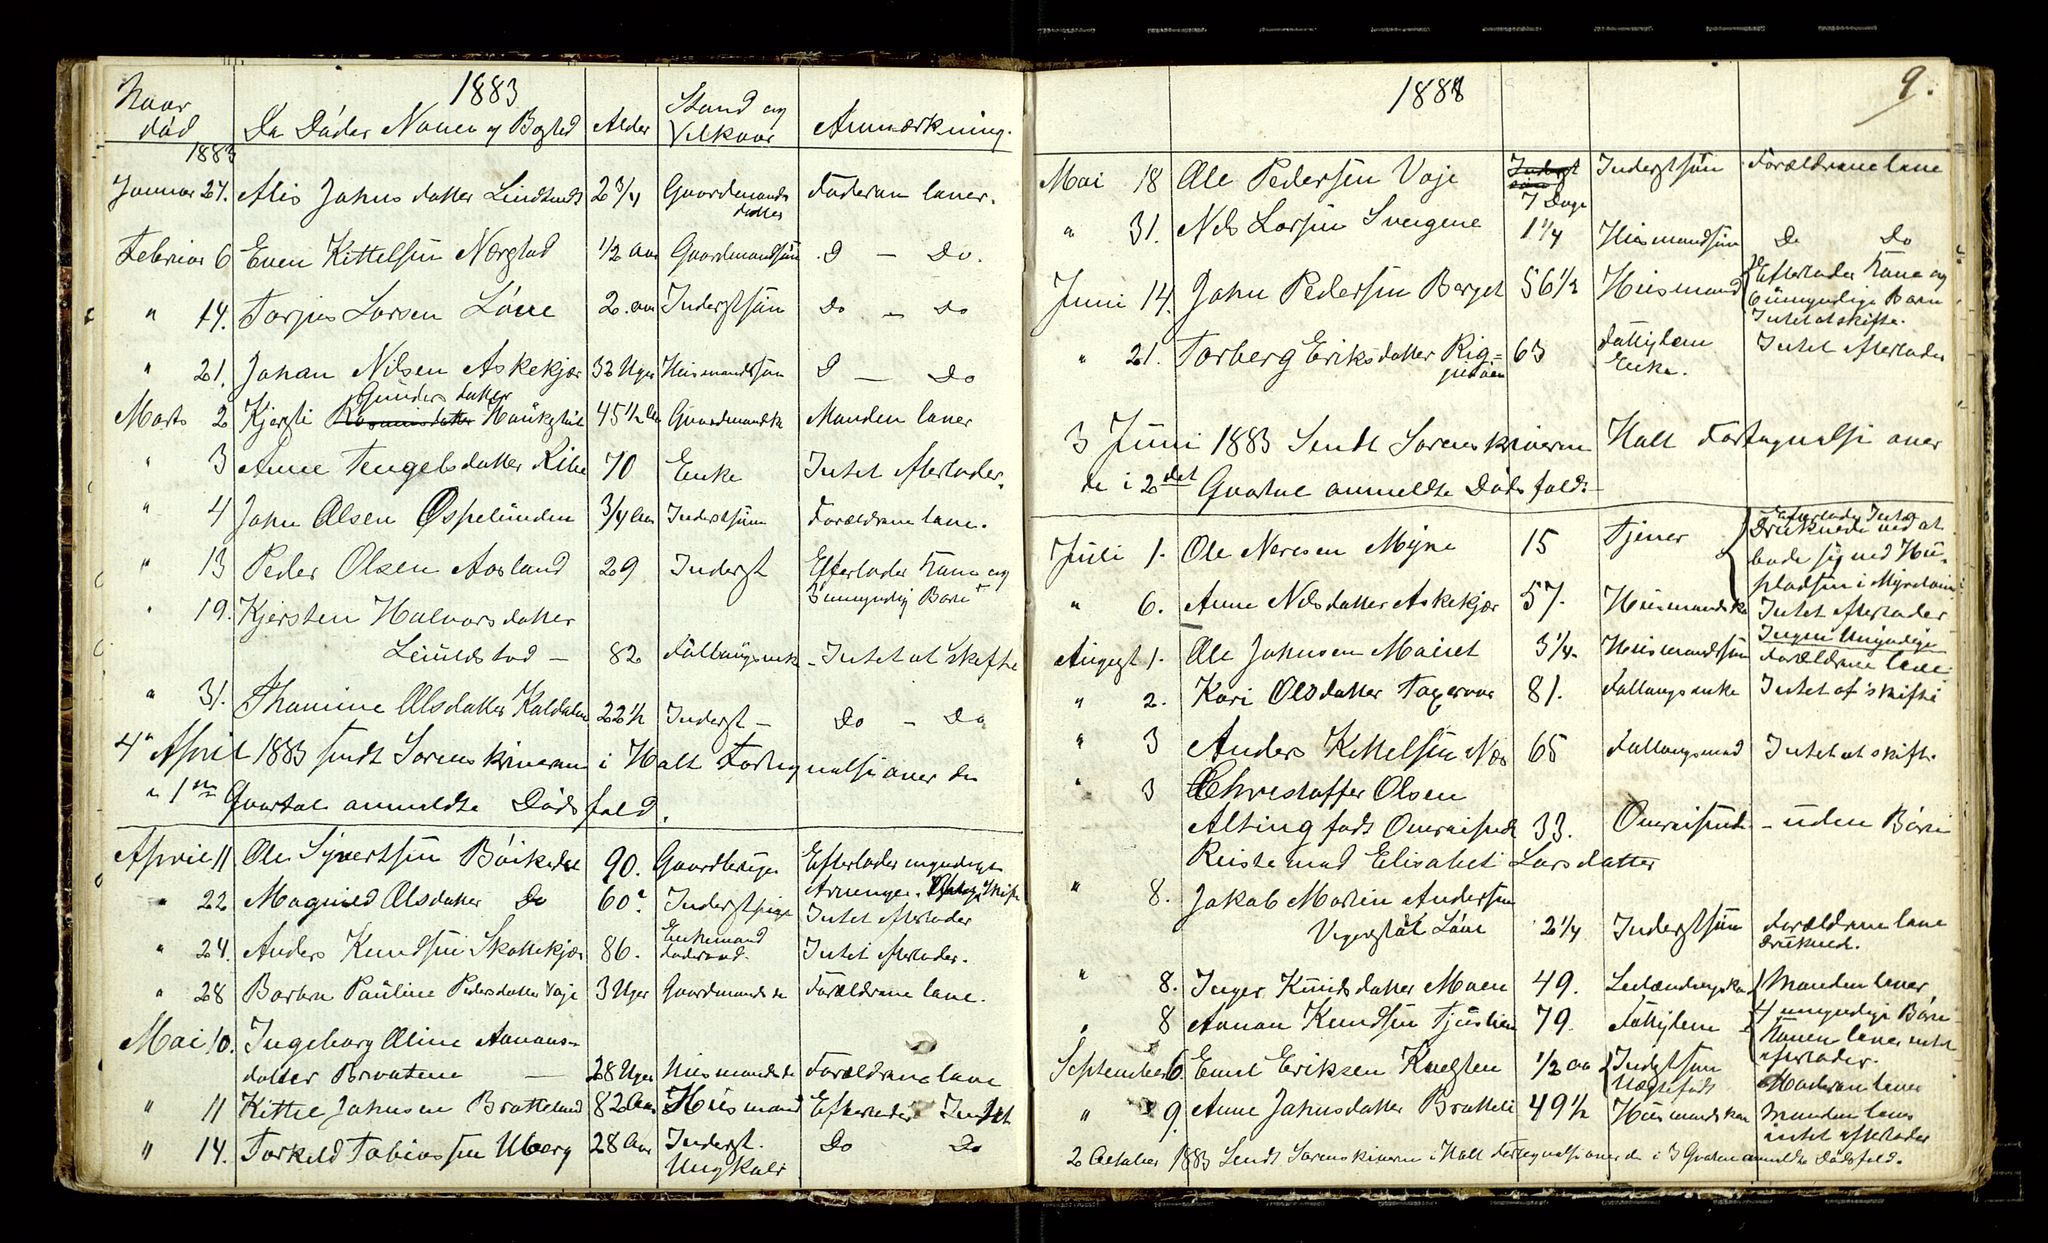 1883
Naar død
De Dødes Navne og Bosted
Alder
Stand og Vilkaar
Anmærkning.
1883
Januar 27. Alis Jahns datter Lindtveds 2 3/4 Gaardmands datter Faderen lever.
Februar 6 Even Kittelsen Nærstad 1/2 aar Gaardmandssøn D — Do.
" 14. Torjus Larsen Løvve 2 aar Inderstsøn Do — Do
" 21. Johan Nilsen Askekjær 32 Uger Husmandssøn D — Do
Gunders datter
Marts 2 Kjersti Haukestøl 45 1/2 Aar Gaardmandsk Manden lever
" 3 Anne Tengelsdatter Ribe 70 Enke Intet efterlader.
" 4 John Olsen Ospelunden 3/4 Aar Inderstsøn Forældrene leve.
" 13 Peder Olsen Aasland 29 Inderst Efterlader Kone og
3 umyndig Børn
" 19. Kjersten Halvorsdatter
Leuldstad — 82 Fattigenke - Intet at skifte
" 31. Thomine Olsdatter Kaldalen 22 1/2 Inderst - Do - Do
4 April 1883 sendt Sorenskriveren i Holt Fortegnelse over de
i 1ste Qvartal anmeldte Dødsfald.
April 11 Ole Syvertsen Bøikedal 90. Efterlader myndige
Arvinger.
" 22 Magnild Olsdatter Do 60 Inderstpige Intet efterlader
" 24. Anders Knudsen Skottekjær 86. Enkemand Intet efterlader.
" 28 Barbra Pauline Pedersdatter Voje 3 Uger Gaardmands d Forældrene leve.
Mai 10. Ingeborg Oline Aanons-
datter Brvatene — 28 Uger Husmands d Forældrene leve
" 11 Kittel Johnsen Bratteland 82 Aar Husmand Efterlader Intet
" 14. Torkeld Tobiassen Uberg 28 Aar Inderst. Do Do
Ungkarl
1888
9.
Mai 18 Ole Pedersen Voje 7 Dage Inderstsøn Forældrene leve
" 31. Nils Larsen Svengene 1 1/4 Husmandssøn Do Do
Juni 14. John Pedersen Berget 56 1/2 Husmand Efterlader Kone og
6 umyndige Børn
Intet at skifte.
" 21. Torberg Eriksdatter Rig= 63 Fattiglem Intet efterlader
Enke.
3 Juni 1883 Sendt Sorenskriveren Holt Fortegnelse over
de i 2det Qvartal anmeldte Dødsfald -
Efterlader Intet
Juli 1. Ole Neresen Myre 15 Tjener Druknede ved at
bade sig ved Hus-
pladsen i
" 6. Anne Nilsdatter Askekjær 57. Husmandsko Intet efterlader
Ingen Umyndige
August 1. Ole Johnsen Moinet 3 1/4. Husmandssøn Forældrene leve
" 2. Kari Olsdatter 81. Fattigenke Intet at skifte
" 3 Anders Kittelsen Næs 65 Intet at skifte
" 3 Christoffer Olsen
Alting født Omreisende 33. Omreisende - uden Børn
Reiste med Elisabet Larsdatter
" 8. Jakob Martin Andersen
Vegerstøl Løvve 2 1/4 Inderstsøn Forældrene leve
Druknede.
" 8. Inger Knudsdatter Moen 49. Manden lever
4 umyndige Børn
" 8 Aanon Knudsen 79. Fattiglem Konen lever intet
efterlader.
September 6. Emil Eriksen Knelsten 1/2 aar Inderstsøn Moderen lever
Uægtefødt
" 9. Anne Johnsdatter Bratteli 49 1/2 Husmandskone Manden lever
intet efterlader
2 October 1883 Sendt Sorenskriveren i Holt Fortegnelse over de i 3 Qvartal anmeldte Dødsfald.